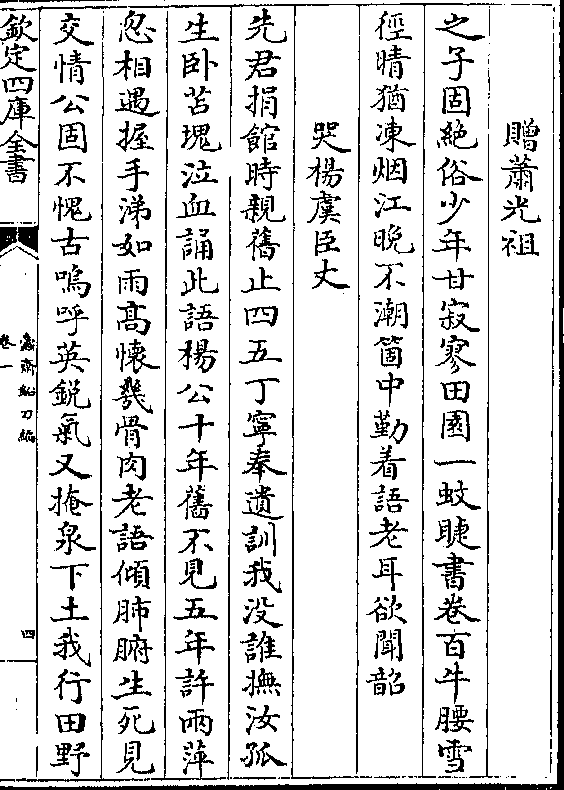 贈蕭光祖
之子固絶俗少年甘寂寥田園一蚊睫書卷百牛腰雪
徑晴猶凍烟江晚不潮箇中勤着語老耳欲聞韶
哭楊虞臣丈
先君捐館時親舊止四五丁寧奉遺訓我没誰撫汝孤
生卧苫塊泣血誦此語楊公十年舊不見五年許兩萍
忽相遇握手涕如雨髙懷㡬骨肉老語傾肺腑生死見
交情公固不愧古嗚呼英鋭氣又掩泉下土我行田野
欽定四庫全書
蠹齋鉛刀編
卷一
四